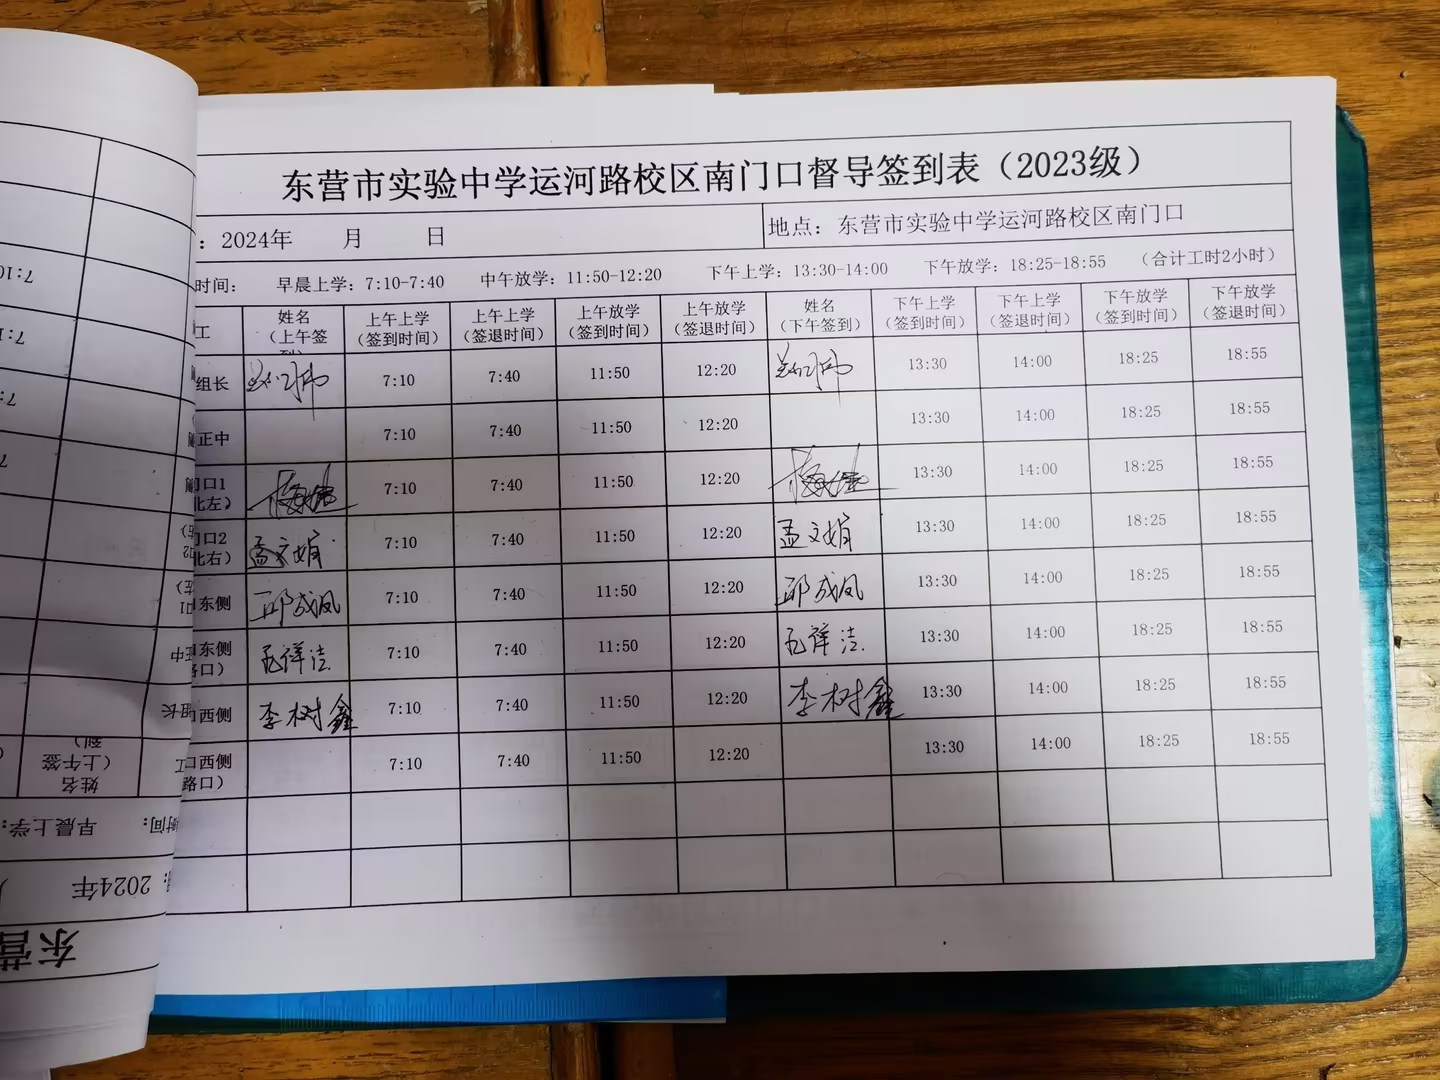 东营市实验中学运河路校区南门口督导签到表（2023级）
：2024年 月 日 地点：东营市实验中学运河路校区南门口
时间： 早晨上学：7:10-7:40 中午放学：11:50-12:20 下午上学：13:30-14:00 下午放学：18:25-18:55 （合计工时2小时）
工 姓名（上午签到） 上午上学（签到时间） 上午上学（签退时间） 上午放学（签到时间） 上午放学（签退时间） 姓名（下午签到） 下午上学（签到时间） 下午上学（签退时间） 下午放学（签到时间） 下午放学（签退时间）
组长 7:10 7:40 11:50 12:20 13:30 14:00 18:25 18:55
正中 7:10 7:40 11:50 12:20 13:30 14:00 18:25 18:55
门口1北左） 7:10 7:40 11:50 12:20 13:30 14:00 18:25 18:55
门口2北右） 孟文娟 7:10 7:40 11:50 12:20 孟文娟 13:30 14:00 18:25 18:55
东侧 邱成凤 7:10 7:40 11:50 12:20 邱成凤 13:30 14:00 18:25 18:55
东侧路口） 祥洁 7:10 7:40 11:50 12:20 祥洁 13:30 14:00 18:25 18:55
西侧 李树鑫 7:10 7:40 11:50 12:20 李树鑫 13:30 14:00 18:25 18:55
口西侧路口） 7:10 7:40 11:50 12:20 13:30 14:00 18:25 18:55
7:10
组长
姓名（上午签到）
时间： 早晨上学：
2024年
东营